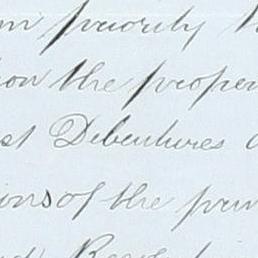 priority
on the proper
st Debentures
ions of the prin